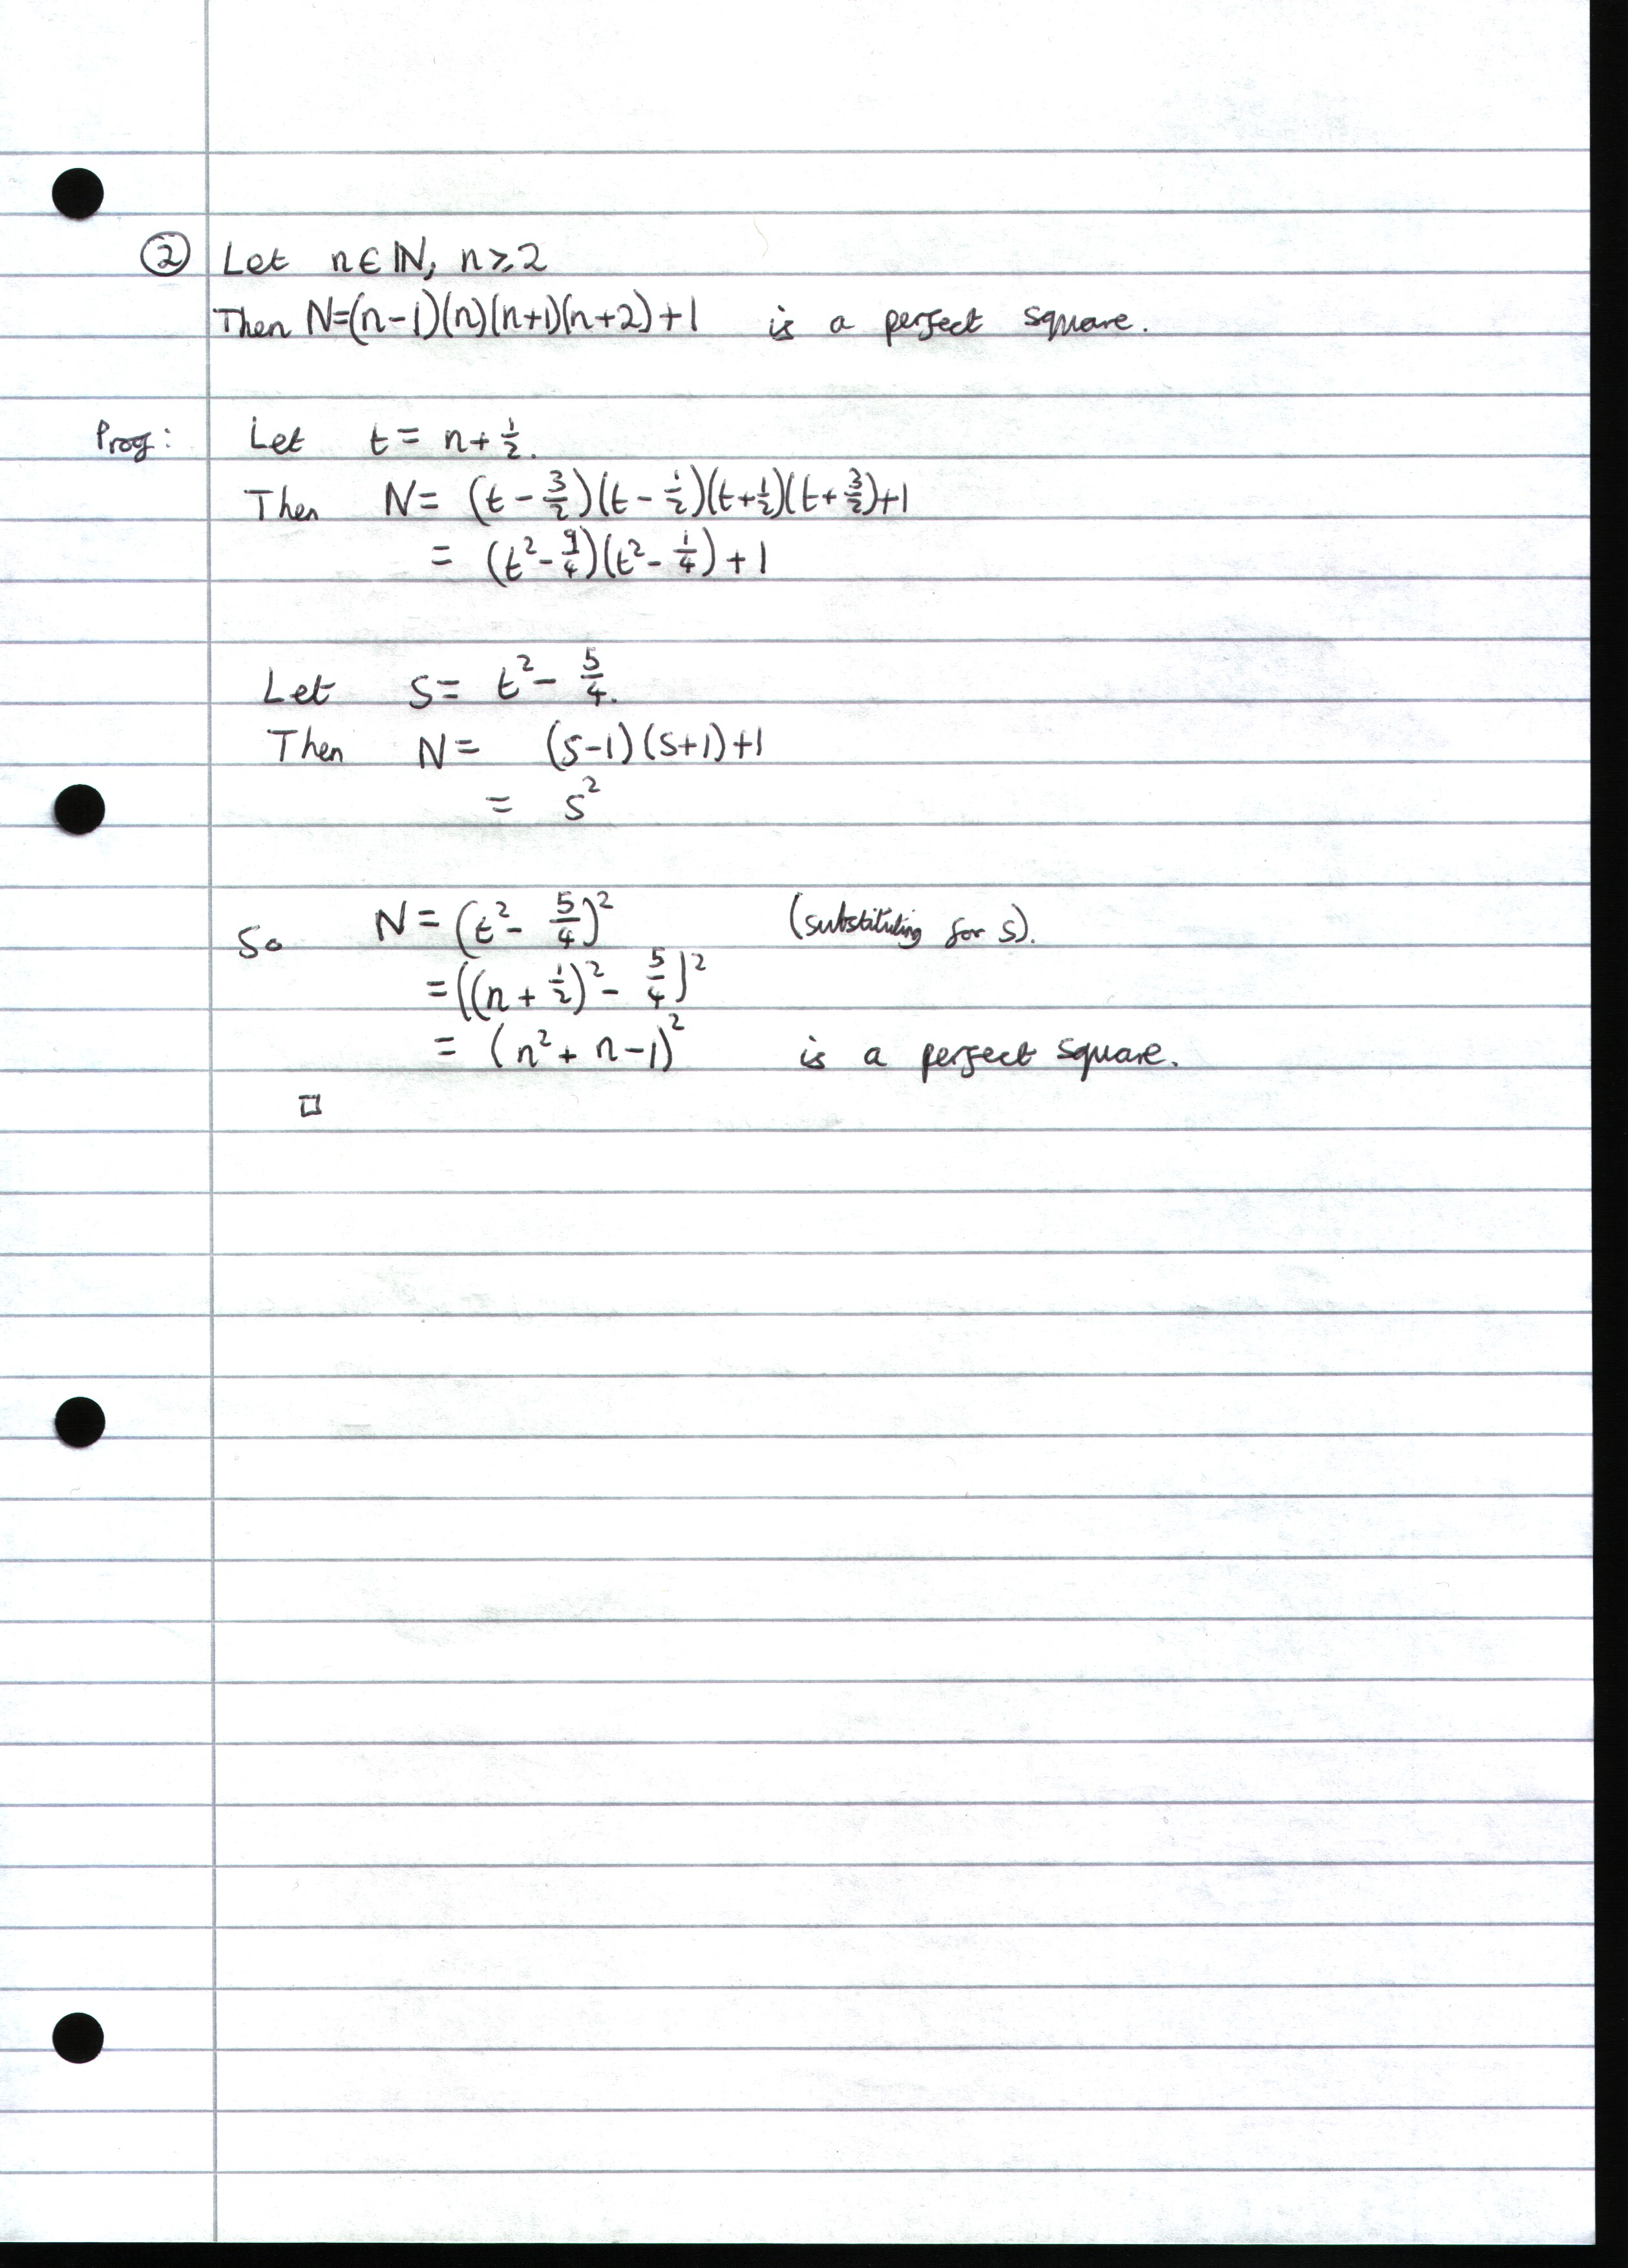 ② Let n ∈ ℕ, n ≥ 2
Then N=(n-1)(n)(n+1)(n+2)+1 is a perfect square.
Proof: Let t = n + 1/2.
Then N = (t - 3/2)(t - 1/2)(t + 1/2)(t + 3/2)+1
= (t² - 9/4)(t² - 1/4) + 1
Let s = t² - 5/4.
Then N = (s-1)(s+1)+1
= s²
So N = (t² - 5/4)² (substituting for s).
= ((n + 1/2)² - 5/4)²
= (n² + n - 1)² is a perfect square.
□